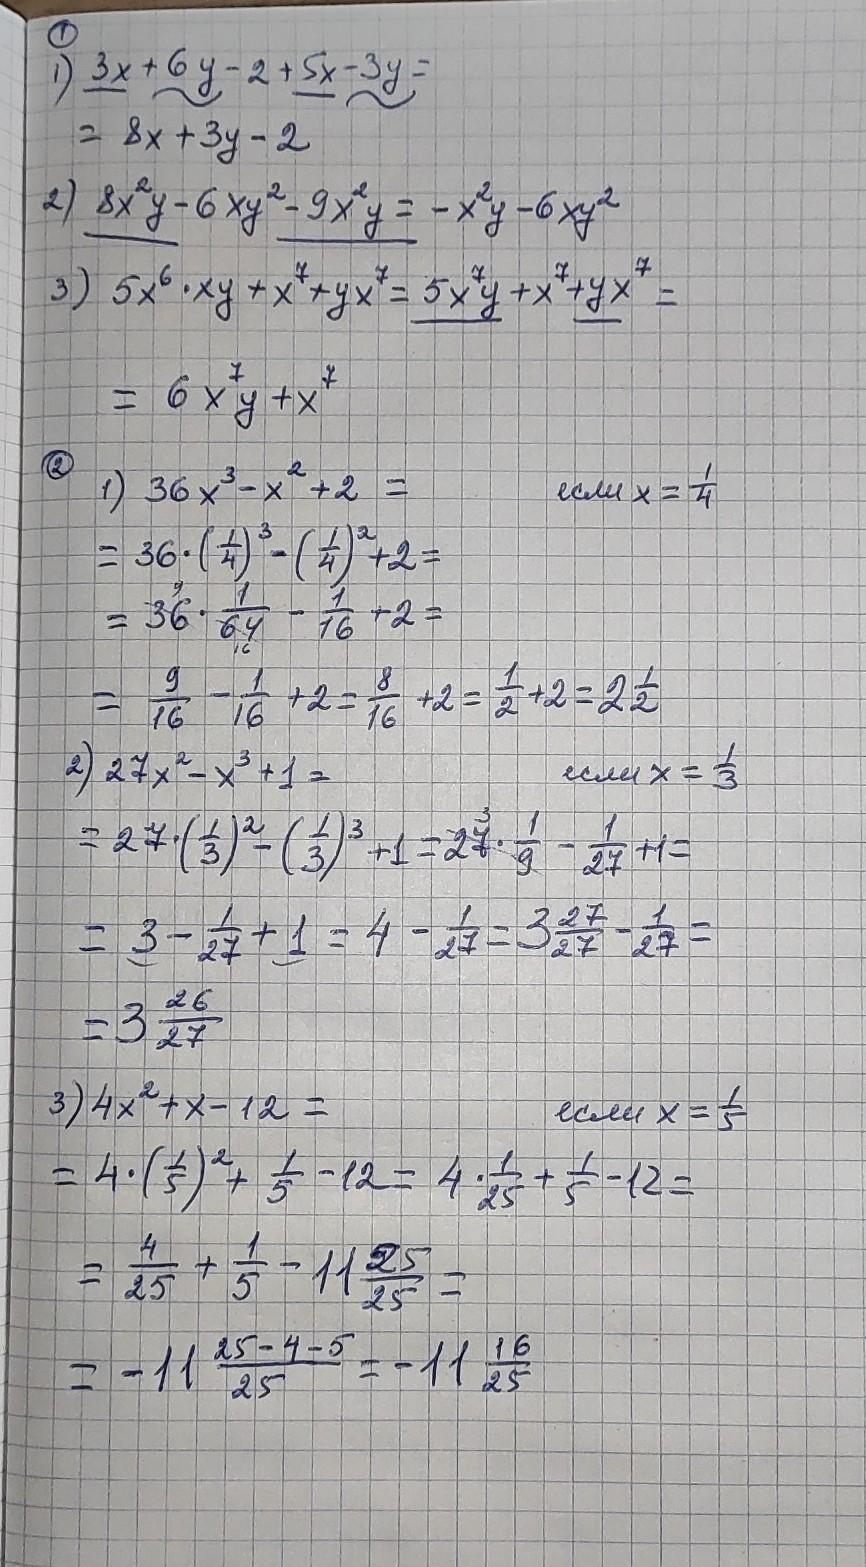 ①
1) 3x + 6y - 2 + 5x - 3y =
= 8x + 3y - 2
2) 8x²y - 6xy² - 9x²y = -x²y - 6xy²
3) 5x⁶ · xy + x⁷ + yx⁷ = 5x⁷y + x⁷ + yx⁷ =
= 6x⁷y + x⁷
②
1) 36x³ - x² + 2 = если x = 1/4
= 36 · (1/4)³ - (1/4)² + 2 =
= 36 9 · 1/64 16 - 1/16 + 2 =
= 9/16 - 1/16 + 2 = 8/16 + 2 = 1/2 + 2 = 2 1/2
2) 27x² - x³ + 1 = если x = 1/3
= 27 · (1/3)² - (1/3)³ + 1 = 27 3 · 1/9 - 1/27 + 1 =
= 3 - 1/27 + 1 = 4 - 1/27 = 3 27/27 - 1/27 =
= 3 26/27
3) 4x² + x - 12 = если x = 1/5
= 4 · (1/5)² + 1/5 - 12 = 4 · 1/25 + 1/5 - 12 =
= 4/25 + 1/5 - 11 25/25 =
= -11 25-4-5/25 = -11 16/25